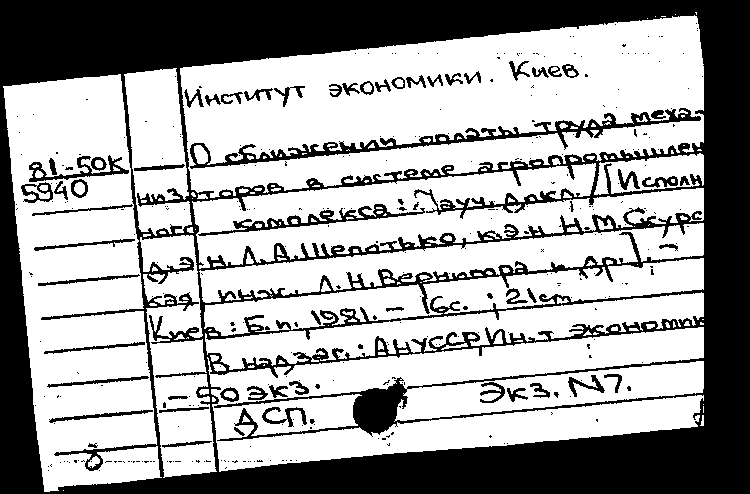 Институт экономики. Киев.
81.-50К
5940
О сближении оплаты труда меха-
низаторов в системе агропромышлен
ного комплекса: Науч. докл. / [Исполн
д.э.н. Л.А. Шепотько, к.э.н Н.М. Скурс
кая, инж. Л.Н. Вернигора и др.]. –
Киев: Б.и., 1981. – 16с. ; 21см.
В надзаг.: АН УССР, Ин-т экономик
.– 50 экз.
ДСП.
Экз. N7.